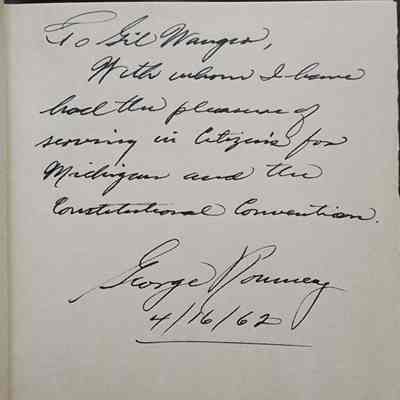 To Gil Wanger,
With whom I have
had the pleasure of
serving in Citizens for
Michigan and the
Constitutional Convention.
George Romney
4/16/62